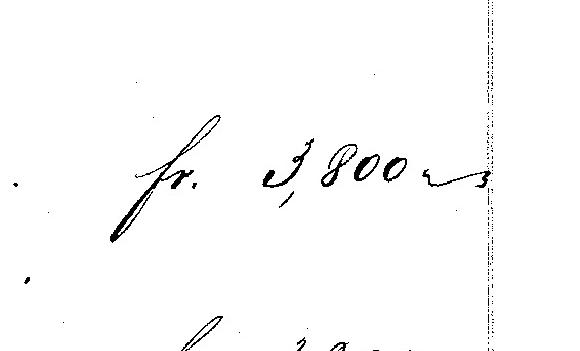 fr. 3,800